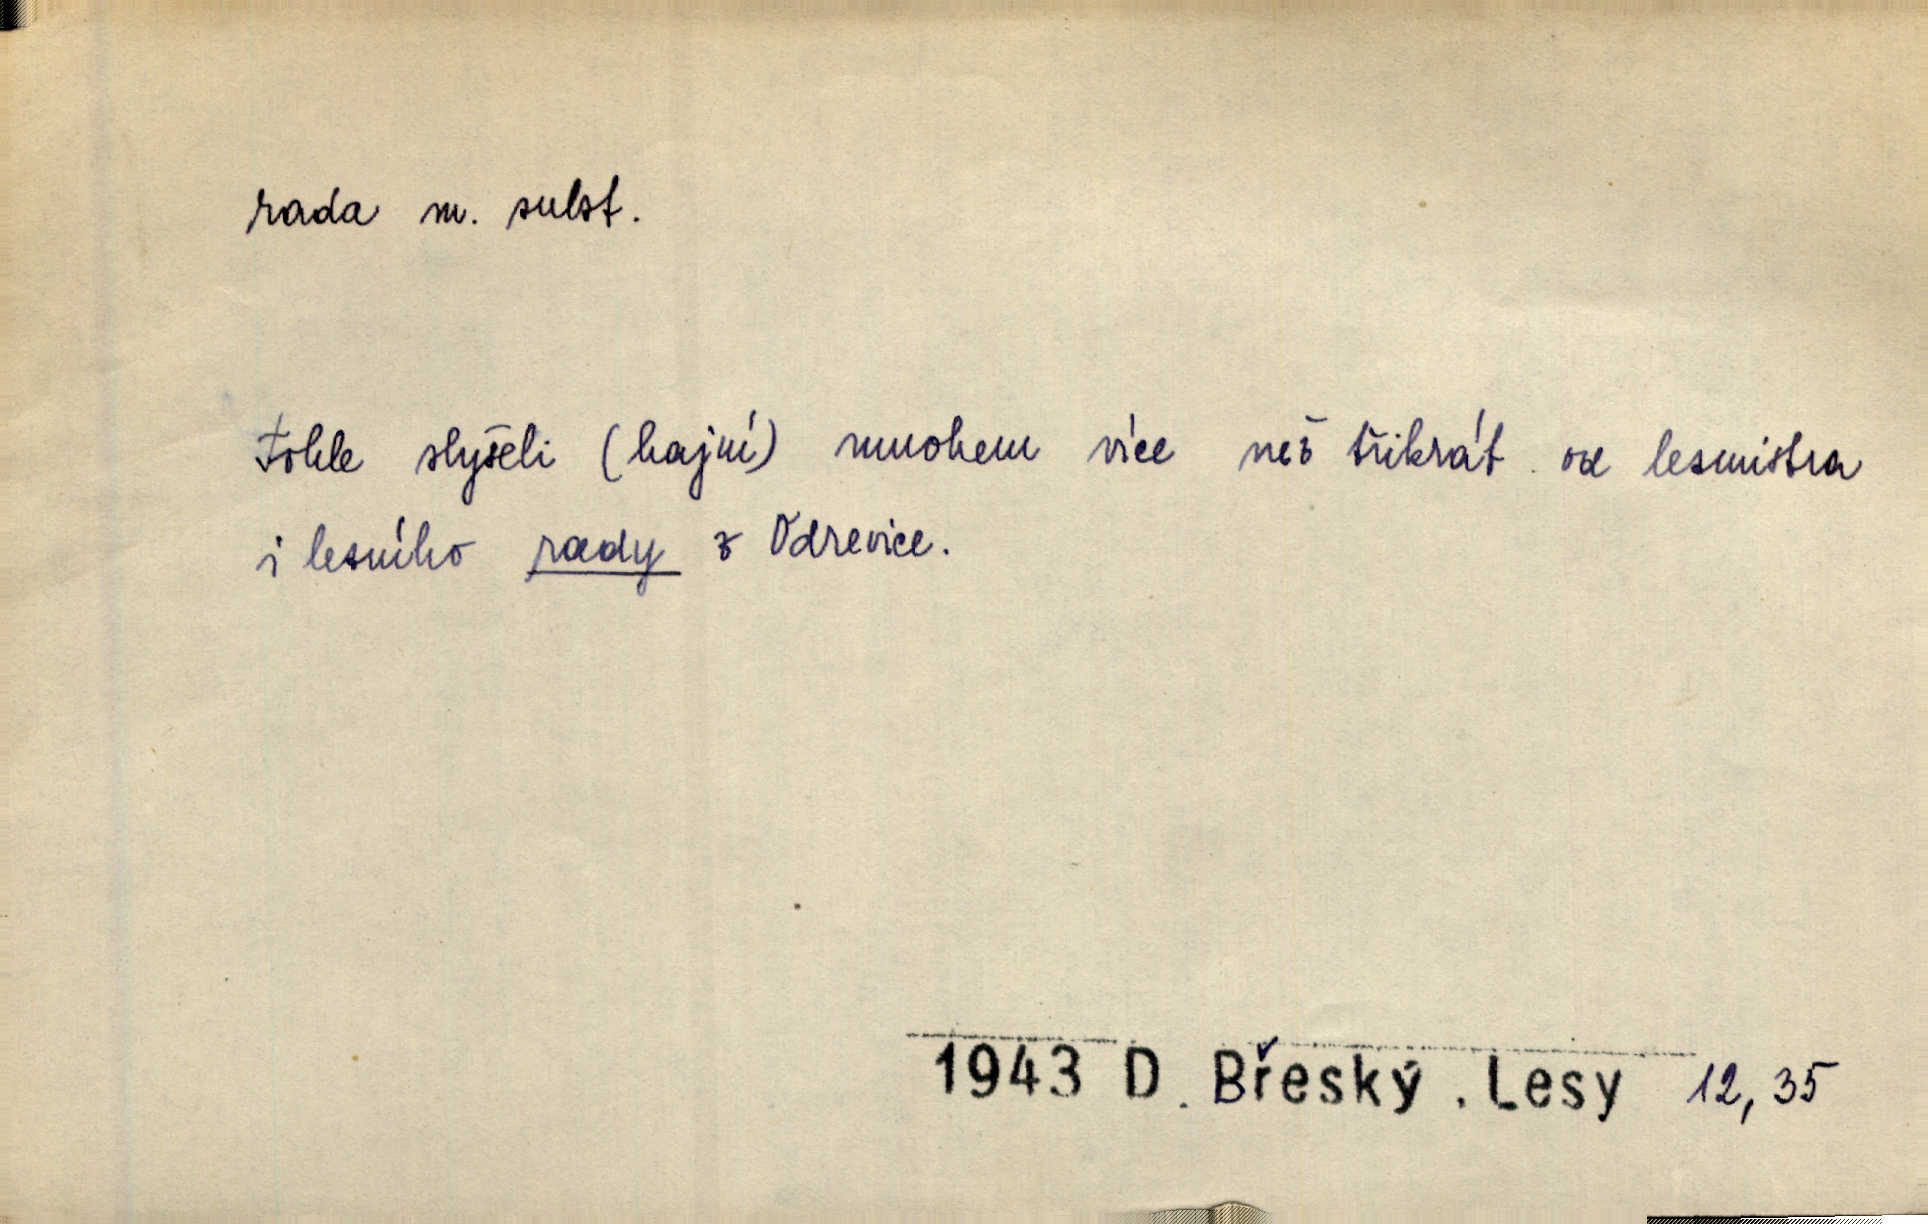 rada m. subst.
Tohle slyšeli (hajní) mnohem více než třikrát od lesmistra
i lesního rady z Odrevice.
1943 D. Břeský. Lesy 12, 35